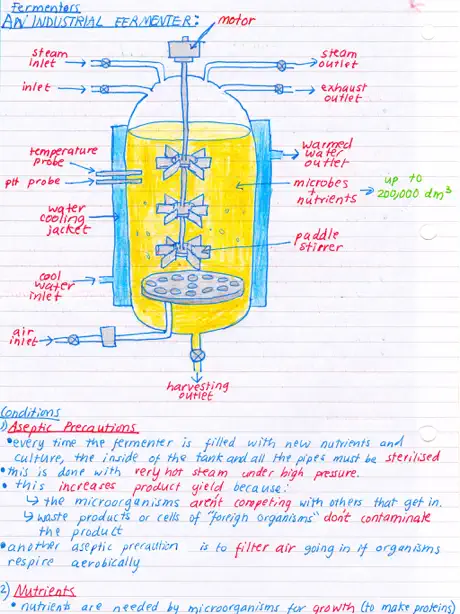 Fermentors
AN INDUSTRIAL FERMENTER:
motor
steam
inlet
steam
outlet
inlet
exhaust
outlet
temperature
probe
pH probe
warmed
water
outlet
microbes
+
nutrients
up to
200,000 dm³
water
cooling
jacket
paddle
stirrer
cool
water
inlet
air
inlet
harvesting
outlet
Conditions
1) Aseptic Precautions
• every time the fermenter is filled with new nutrients and
culture, the inside of the tank and all the pipes must be sterilised
• this is done with very hot steam under high pressure.
• this increases product yield because:
↳ the microorganisms aren't competing with others that get in.
↳ waste products or cells of "foreign organisms" don't contaminate
the product
• another aseptic precaution is to filter air going in if organisms
respire aerobically
2) Nutrients
• nutrients are needed by microorganisms for growth (to make proteins)